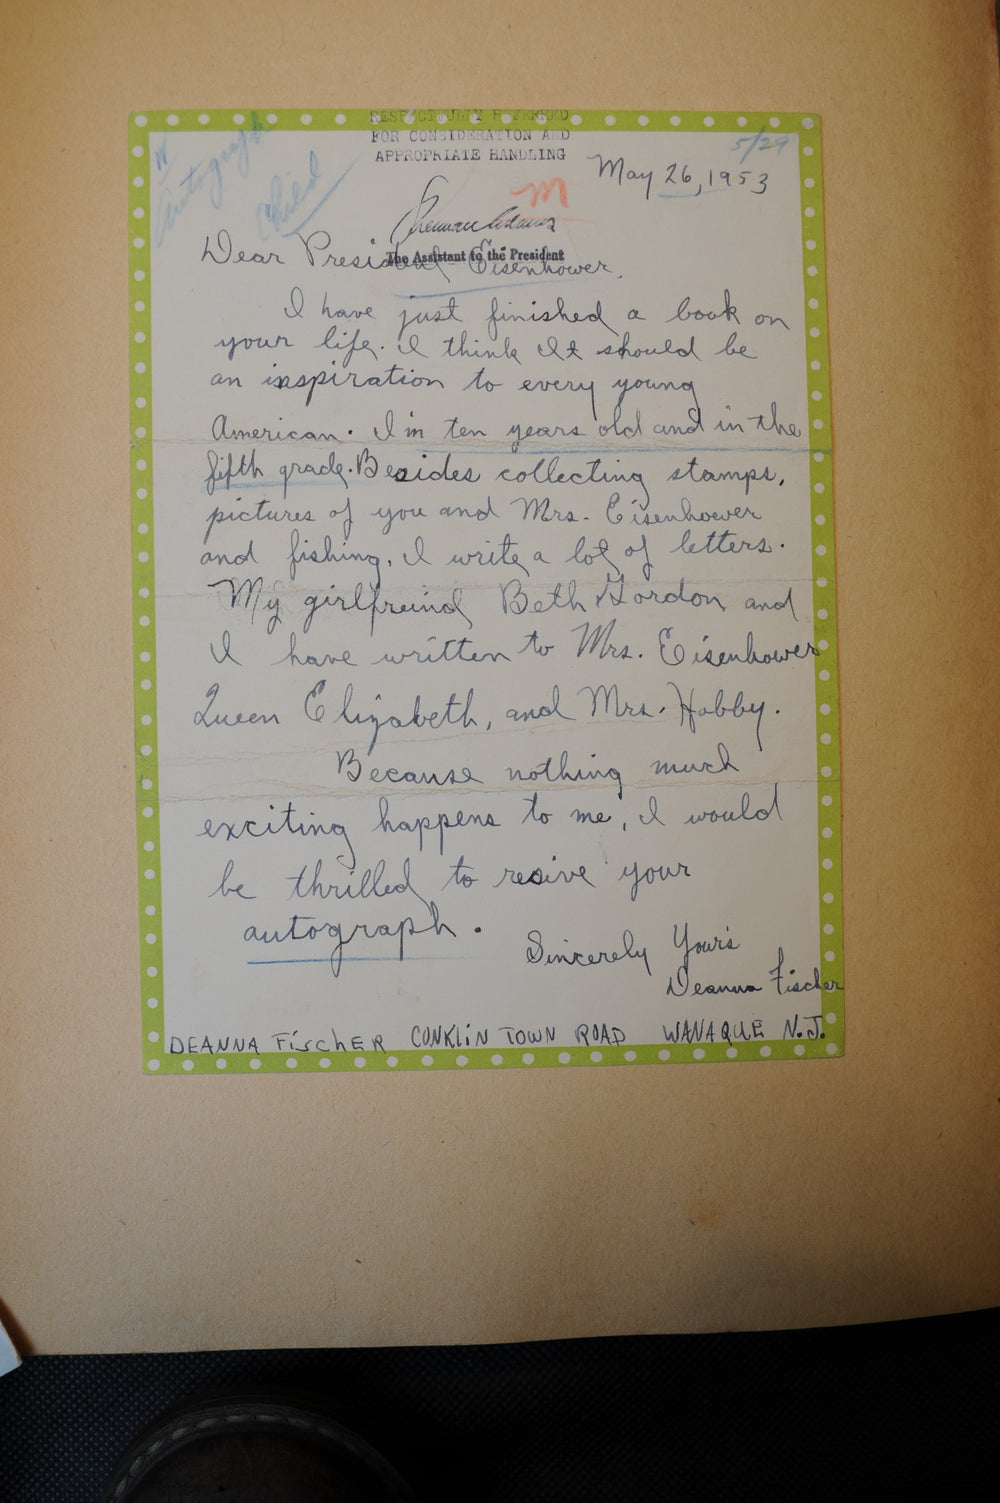 RESPECTFULLY REFERRED
FOR CONSIDERATION AND
APPROPRIATE HANDLING
Autograph
Child
5/29
May 26, 1953
M
Sherman Adams
The Assistant to the President
Dear President Eisenhower,
I have just finished a book on
your life. I think It should be
an inspiration to every young
American. I'm ten years old and in the
fifth grade. Besides collecting stamps,
pictures of you and Mrs. Eisenhower
and fishing, I write a lot of letters.
My girlfreind Beth Gordon and
I have written to Mrs. Eisenhower
Queen Elizabeth, and Mrs. Hobby.
Because nothing much
exciting happens to me, I would
be thrilled to resive your
autograph.
Sincerely Your's
Deanna Fischer
DEANNA FiscHER CONKLiN TOWN ROAD WANAQUE N.J.